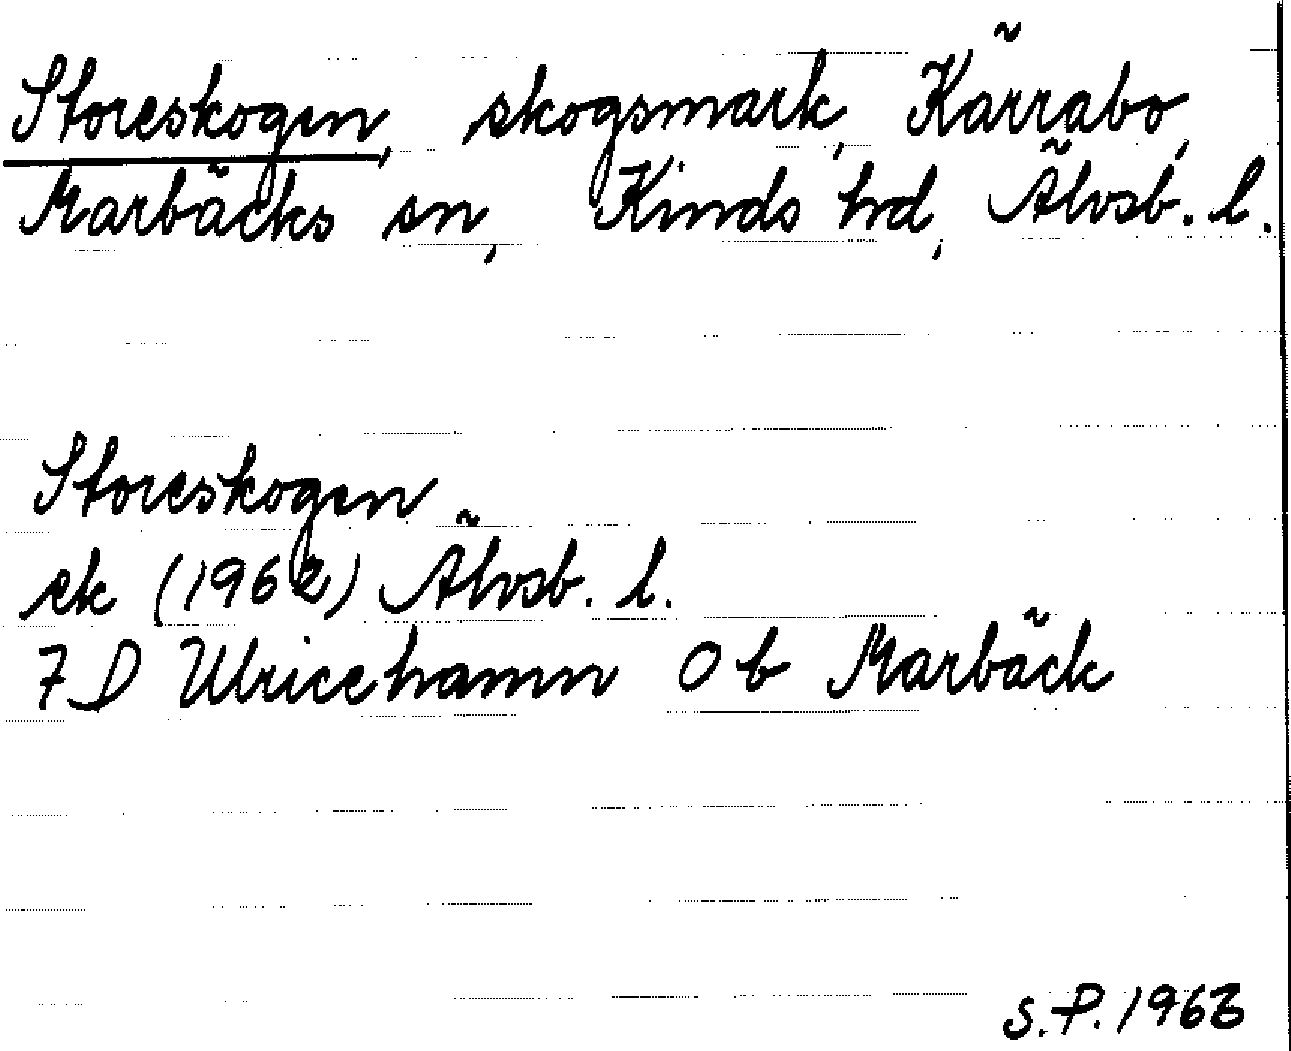 Storeskogen, skogsmark, Kärrabo,
Marbäcks sn, Kinds hd, Älvsb. l.
Storeskogen
ek (1962) Älvsb. l.
7D Ulricehamn Ob Marbäck
S.P. 1963